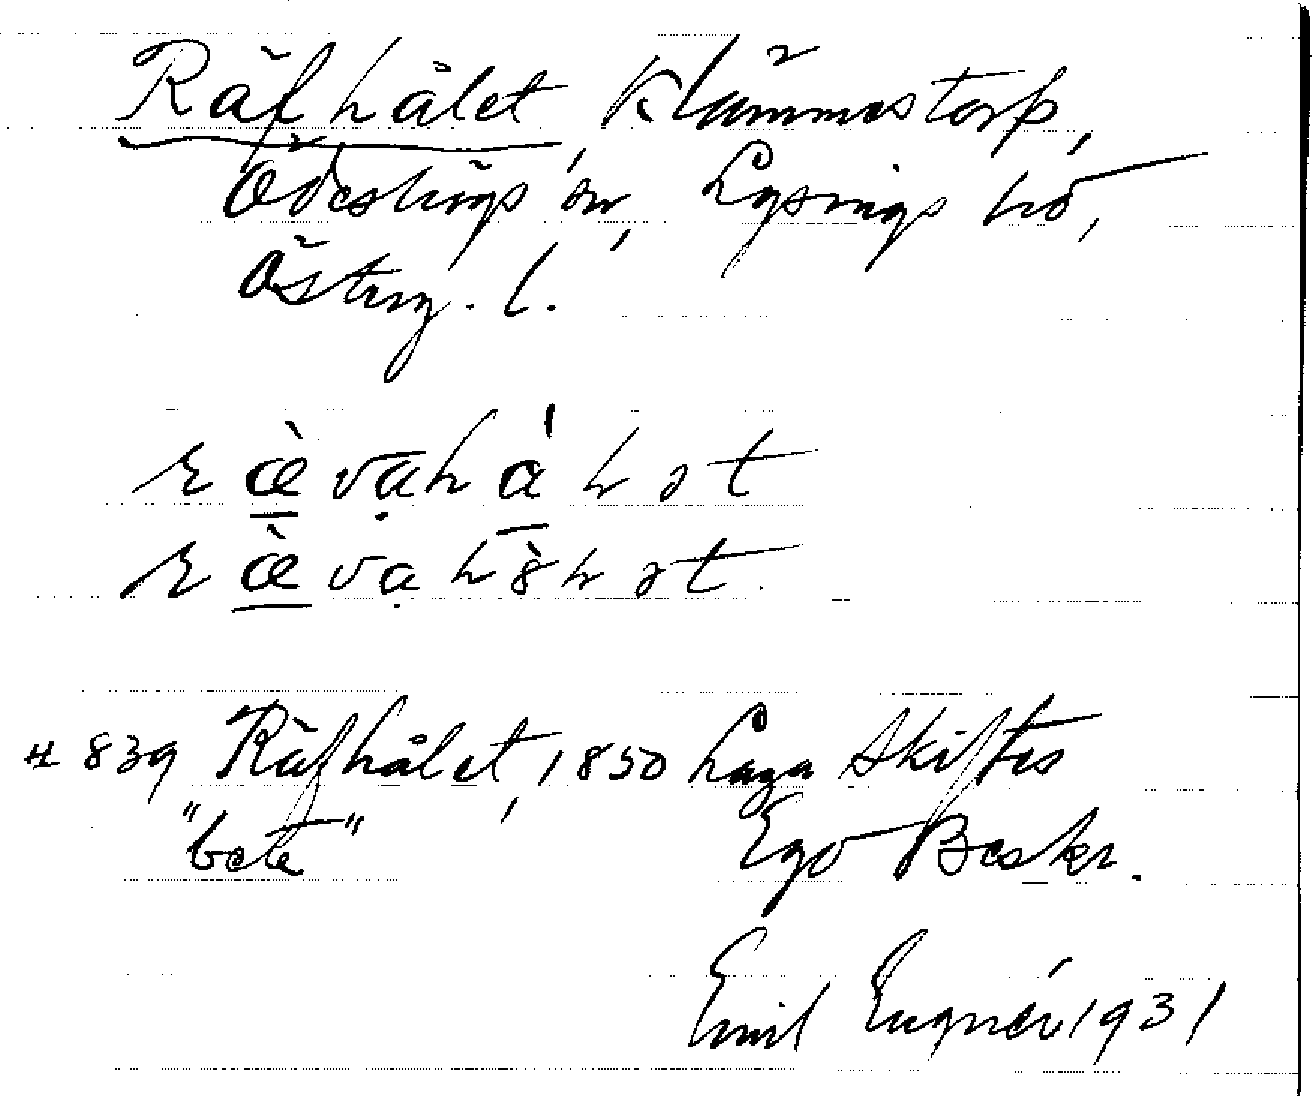 Räfhålet, Klämmestorp,
Ödeshögs sn, Lysings hd,
Österg. l.
ræ̀vahåhət
ræ̀vahòhət
# 839 Räfhålet, 1850 Laga Skiftes
"bete" Ego Beskr.
Emil Lugnér 1931